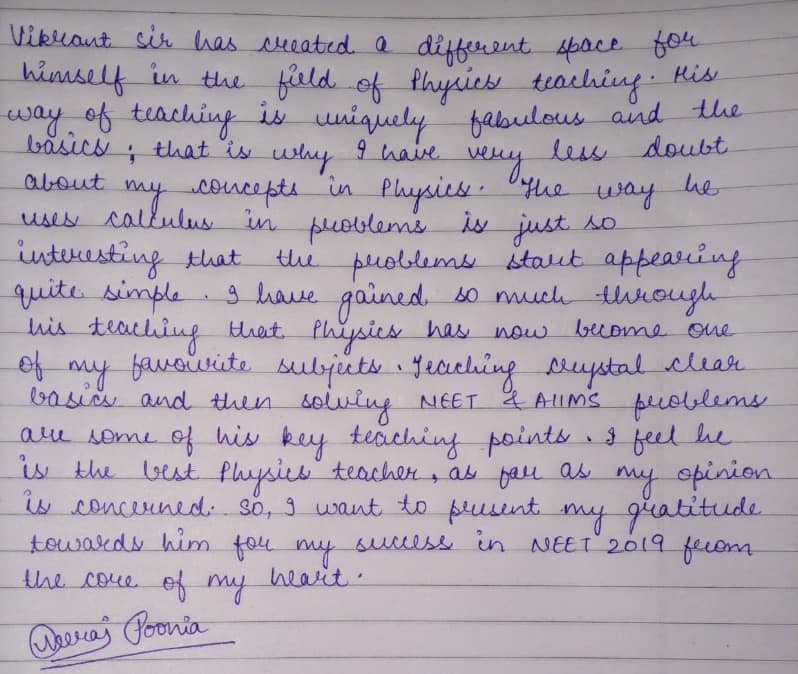 Vikrant sir has created a different space for
himself in the field of Physics teaching. His
way of teaching is uniquely fabulous and the
basics; that is why I have very less doubt
about my concepts in Physics. The way he
uses calculus in problems is just so
interesting that the problems start appearing
quite simple. I have gained so much through
his teaching that Physics has now become one
of my favourite subjects. Teaching crystal clear
basics and then solving NEET & AIIMS problems
are some of his key teaching points. I feel he
is the best Physics teacher, as far as my opinion
is concerned. So, I want to present my gratitude
towards him for my success in NEET 2019 from
the core of my heart.
Neeraj Poonia